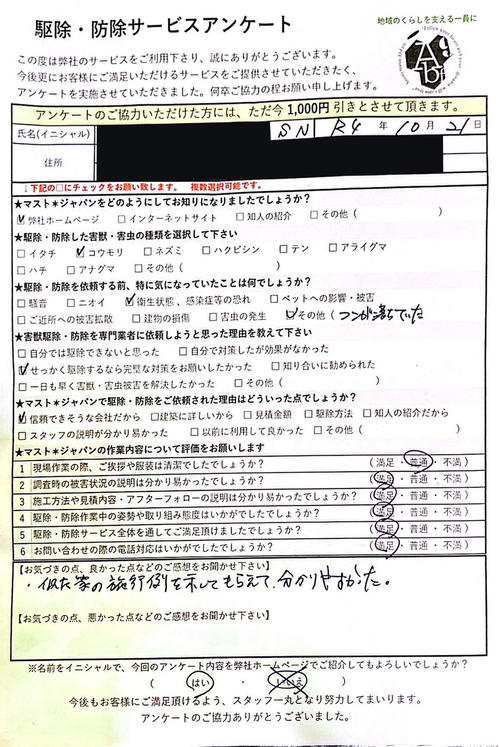 駆除・防除サービスアンケート
地域のくらしを支える一員に
この度は弊社のサービスをご利用下さり、誠にありがとうございます。
今後更にお客様にご満足いただけるサービスをご提供させていただきたく、
アンケートを実施させていただきました。何卒ご協力の程お願い申し上げます。
アンケートのご協力いただけた方には、ただ今1,000円引きとさせて頂きます。
氏名(イニシャル) SN R4 年 10 月 21 日
住所
↓下記の□にチェックをお願い致します。 複数選択可能です。
★マスト＊ジャパンをどのようにしてお知りになりましたでしょうか？
☑弊社ホームページ □インターネットサイト □知人の紹介 □その他 ( )
★駆除・防除した害獣・害虫の種類を選択して下さい
□イタチ ☑コウモリ □ネズミ □ハクビシン □テン □アライグマ
□ハチ □アナグマ □その他 ( )
★駆除・防除を依頼する前、特に気になっていたことは何でしょうか？
□騒音 □ニオイ ☑衛生状態、感染症等の恐れ □ペットへの影響・被害
□ご近所への被害拡散 □建物の損傷 □害虫の発生 ☑その他 (フンが落ちていた
★害獣駆除・防除を専門業者に依頼しようと思った理由を教えて下さい
□自分では駆除できないと思った □自分で対策したが効果がなかった
☑せっかく駆除するなら完璧な対策をお願いしたかった □知り合いに勧められた
□一日も早く害獣・害虫被害を解決したかった □その他 ( )
★マスト＊ジャパンで駆除・防除をご依頼された理由はどういった点でしょうか？
☑信頼できそうな会社だから □建築に詳しいから □見積金額 □駆除方法 □知人の紹介だから
□スタッフの説明が分かり易かった □以前に利用して良かった □その他 ( )
★マスト＊ジャパンの作業内容について評価をお願いします
1 現場作業の際、ご挨拶や服装は清潔でしたでしょうか？ (満足・普通・不満)
2 調査時の被害状況の説明は分かり易かったでしょうか？ (満足・普通・不満)
3 施工方法や見積内容・アフターフォローの説明は分かり易かったでしょうか？ (満足・普通・不満)
4 駆除・防除作業中の姿勢や取り組み態度はいかがでしたでしょうか？ (満足・普通・不満)
5 駆除・防除サービス全体を通してご満足頂けましたでしょうか？ (満足・普通・不満)
6 お問い合わせの際の電話対応はいかがでしたでしょうか？ (満足・普通・不満)
【お気づきの点、良かった点などのご感想をお聞かせ下さい】
・似た家の施行例を示してもらえて、分かりやすかった。
【お気づきの点、悪かった点などのご感想をお聞かせ下さい】
※名前をイニシャルで、今回のアンケート内容を弊社ホームページでご紹介してもよろしいでしょうか？
( はい ・ いいえ )
今後もお客様にご満足頂けるよう、スタッフ一丸となり努力してまいります。
アンケートのご協力ありがとうございました。